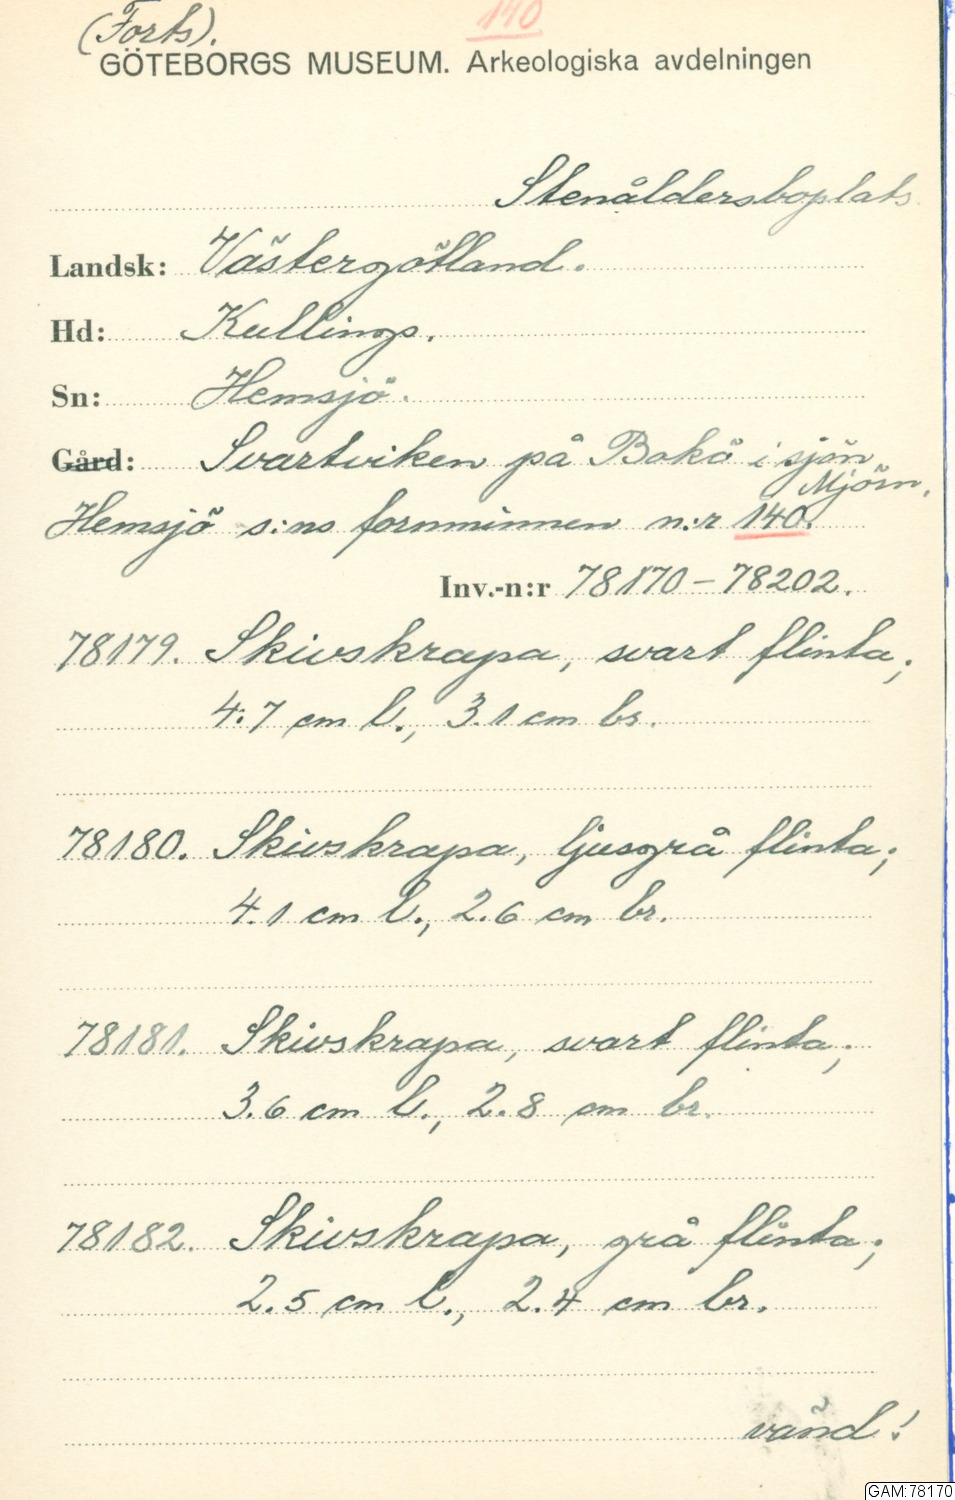 (Forts).
140
GÖTEBORGS MUSEUM. Arkeologiska avdelningen
Stenåldersboplats
Landsk: Västergötland.
Hd: Kullings.
Sn: Hemsjö.
Gård: Svartviken på Bokö i sjön
Mjörn.
Hemsjö s:ns fornminnen n:r 140.
Inv.-n:r 78170-78202.
78179. Skivskrapa, svart flinta;
4.7 cm l., 3.1 cm br.
78180. Skivskrapa, ljusgrå flinta;
4.1 cm l., 2.6 cm br.
78181. Skivskrapa, svart flinta;
3.6 cm l., 2.8 cm br.
78182. Skivskrapa, grå flinta;
2.5 cm l., 2.4 cm br.
vänd!
GAM:78170